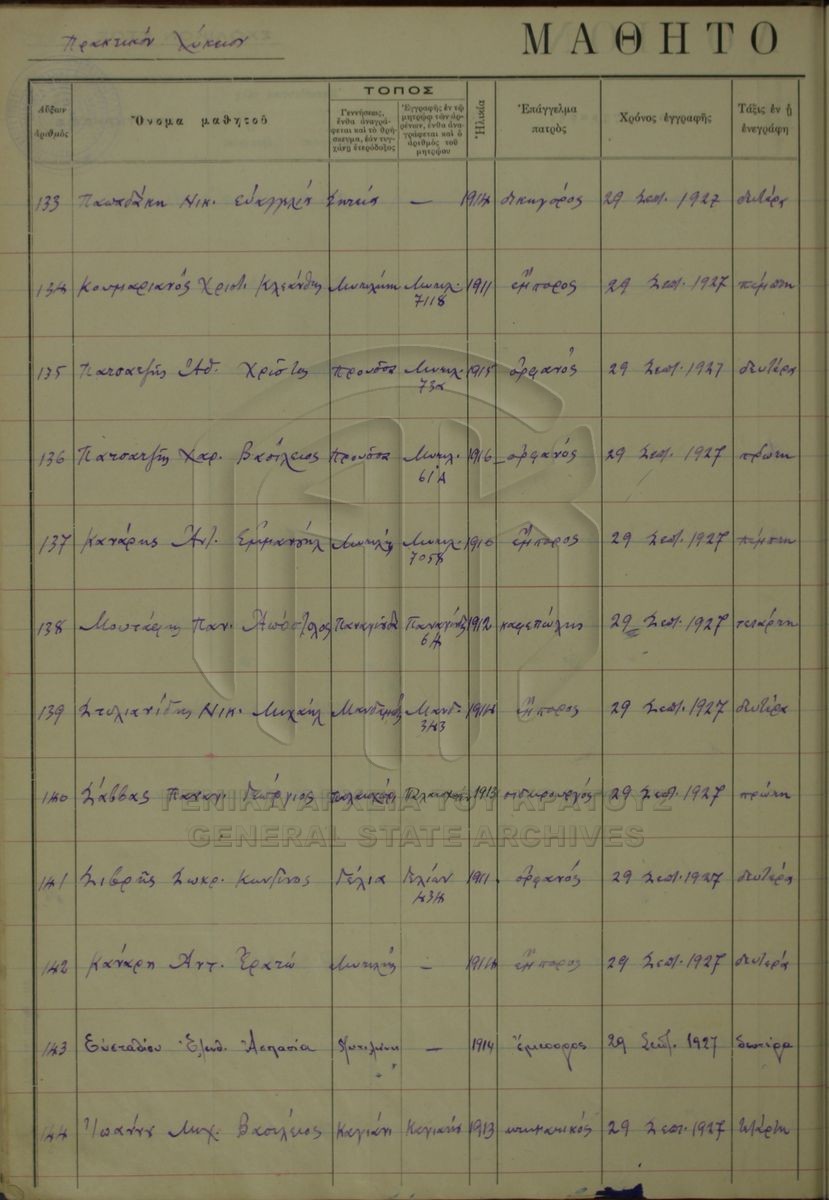 Πρακτικόν Λύκειον
ΜΑΘΗΤΟ
Αὔξων ἀριθμός
Ὄνομα μαθητοῦ
ΤΟΠΟΣ
Γεννήσεως, ἔνθα ἀναγράφεται καὶ τὸ θρήσκευμα, ἐὰν τυγχάνῃ ἑτερόδοξος
Ἐγγραφῆς ἐν τῷ μητρῴῳ τῶν ἀρρένων, ἔνθα ἀναγράφεται καὶ ὁ ἀριθμὸς τοῦ μητρῴου
Ἡλικία
Ἐπάγγελμα πατρὸς
Χρόνος ἐγγραφῆς
Τάξις ἐν ᾗ ἐνεγράφη
133 Παπαδάκη Νικ. Εὐαγγελία — 1914 δικηγόρος 29 Σεπ. 1927 δευτέρα
134 Κουμαριανός Χριστ. Κλεάνθης Μυτιλήνη Μυτιλ. 7118 1911 ἔμπορος 29 Σεπτ. 1927 πέμπτη
135 Πατσατζῆς Ἀθ. Χρῖστος Προῦσσα Μυτιλ. 73α 1915 ὀρφανός 29 Σεπτ. 1927 δευτέρα
136 Πατσατζῆς Χαρ. Βασίλειος Προῦσσα Μυτιλ. 61Α 1916 ὀρφανός 29 Σεπτ. 1927 πρώτη
137 Κανάρης Ἀντ. Ἐμμανουήλ Μυτιλήνη Μυτιλ. 7058 1910 ἔμπορος 29 Σεπτ. 1927 πέμπτη
138 Μουτάφης Παν. Ἀπόστολος Παναγιούδα Παναγιούδα 64 1912 καφεπώλης 29 Σεπτ. 1927 τετάρτη
139 Στυλιανίδης Νικ. Μιχαήλ Μανταμάδος Μανδ. 343 1914 ἔμπορος 29 Σεπτ. 1927 δευτέρα
140 Σάββας Παναγ. Γεώργιος Παλαιοχώρι Παλαιοχώρι 1913 σιδηρουργός 29 Σεπτ. 1927 πρώτη
141 Σιβρῆς Σωκρ. Κωνστῖνος Γέλια Γελίων 434 1911 ὀρφανός 29 Σεπτ. 1927 δευτέρα
142 Κανάρη Ἀντ. Ἐρατώ Μυτιλήνη — 1914 ἔμπορος 29 Σεπτ. 1927 δευτέρα
143 Εὐσταθίου Ἐλευθ. Ἀσπασία Μυτιλήνη — 1914 ἔμπορος 29 Σεπτ. 1927 δευτέρα
144 Ἰωάννου Μιχ. Βασίλειος Καγιάνι Καγιάνι 1913 κτηματικός 29 Σεπτ. 1927 τετάρτη
ΓΕΝΙΚΑ ΑΡΧΕΙΑ ΤΟΥ ΚΡΑΤΟΥΣ
GENERAL STATE ARCHIVES